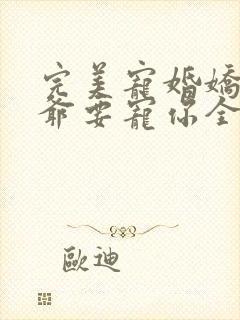 完美寵婚嬌
爺要寵你全
歐迪